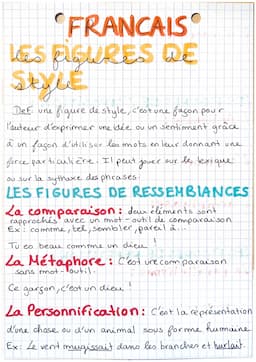 FRANCAIS
LES FIGURES DE
STYLE
Les figures de
style
Def: une figure de style, c'est une façon pour
l'auteur d'exprimer une idée ou un sentiment grâce
à un façon d'utiliser les mots en leur donnant une
force particulière. Il peut jouer sur le lexique
ou sur la sythaxe des phrases.
LES FIGURES DE RESSEMBLANCES
La comparaison: deux éléments sont
rapprochés avec un mot-outil de comparaison
Ex: comme, tel, sembler, pareil à...
Tu es beau comme un dieu!
La Métaphore: C'est une comparaison
sans mot-outil.
Ce garçon, c'est un dieu!
La Personnification: C'est la représentation
d'une chose ou d'un animal sous forme humaine
Ex: Le vent mugissait dans les branches et hurlait.